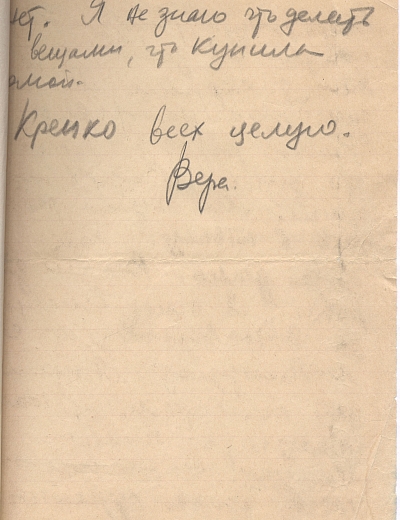 нет. Я не знаю что делать
вещами, что купила
омой.
Крепко всех целую.
Вера.